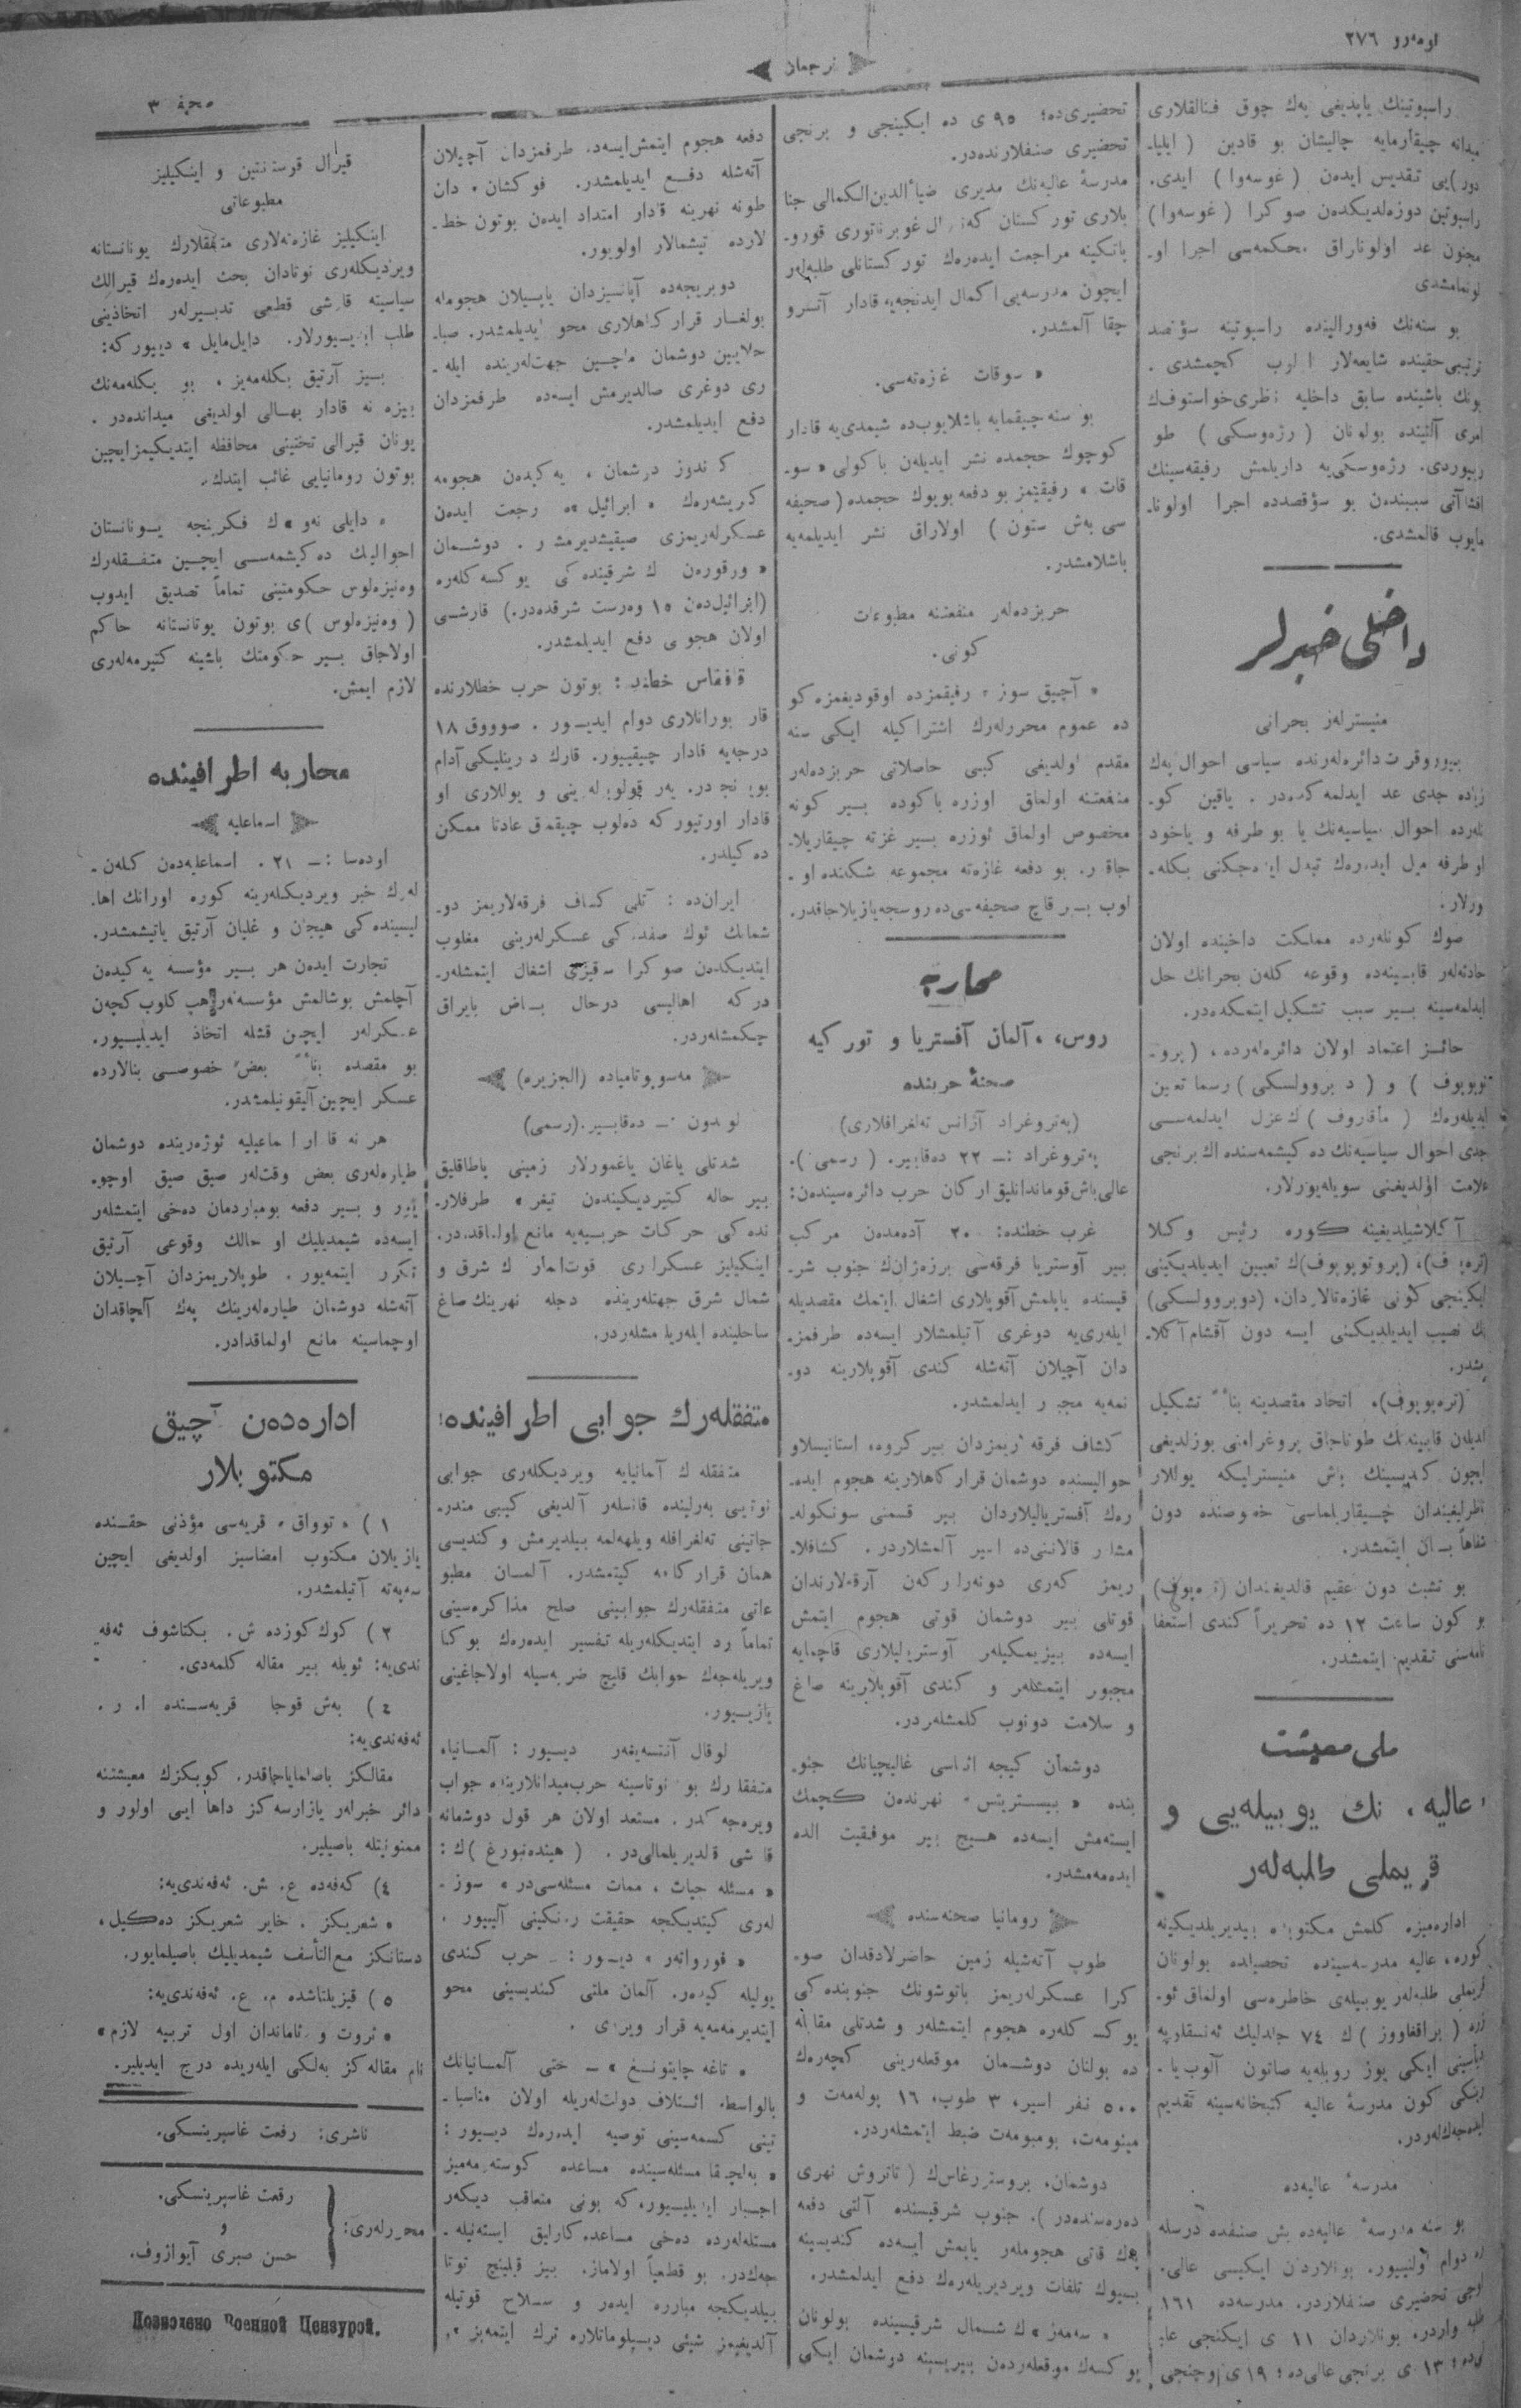 نومەرو ٢٧٦
ترجمان
صحیفە ٣
راسپوتینك یاپدیغی پەك چوق فنالقلاری
میدانە چیقارمایە چالیشان بو قادین ( ایلیا۔
دور)یی تقدیس ایدەن (غوسەوا) ایدی.
راسپوتین دوزەلدیكدەن صوكرا (غوسەوا)
مجنون عد اولوناراق محكمەسی اجرا او۔
لونمامشدی
بو سنەنك فەورالیندە راسپوتینە سؤقصد
ترتیبی حقیندە شایعەلار كچمشدی.
بونك باشیندە سابق داخلیە نظری خواستوف‌ك
امری آلتیندە بولونان (رژەوسكی) طو
ریبوردی. رژەوسكی‌یە داریلمش رفیقەسینك
افشاآتی سببندەن بو سؤقصددە اجرا اولونا۔
مایوب قالمشدی.
داخلی خبرلر
منیسترلەر بحرانی
بیوروقرات دائرەلەرندە سیاسی احوال پەك
زیادە جدی عد ایدلمەكدەدر. یاقین كو۔
نلەردە احوال سیاسیەنك یا بو طرفە و یاخود
او طرفە میل ایدەرەك تبدل ایدەجكنی بكلە۔
ورلار.
صوك كونلەردە مملكت داخیندە اولان
حادثەلەر قابینەدە وقوعە كلەن بحرانك حل
ایدلمەسینە بیر سبب تشكیل ایتمكدەدر.
حائز اعتماد اولان دائرەلەردە، (پرو۔
توپوپوف) و (دبروولسكی) رسما تعیین
ایدیلەرەك (ماقاروف)ك عزل ایدلمەسی
جدی احوال سیاسیەنك دەكیشمەسندە اك برنجی
علامت اولدیغنی سویلەیورلار.
آكلاشیلدیغینە كورە رئیس وكلا
(ترەپوف)، (پروتوپوپوف)ك تعیین ایدیلدیكینی
ایكینجی كونی غازەتالاردان، (دوبروولسكی)
نك نصیب ایدیلدیكنی ایسە دون آقشام آكلا۔
مشدر.
(ترەپوپوف)، اتحاد مقصدینە بناءً تشكیل
ایدیلەن قابینەنك طوتاجاق پروغرامنی بوزلدیغی
ایچون كندیسینك باش منیسترلیكە یوللار
نظرلیغیندان چیقاریلماسی خصوصندە دون
شفاهاً بیان ایتمشدر.
بو تشبث دون عقیم قالدیغندان (ترەپوف)
بو كون ساعت ١٢ دە تحریراً كندی استعفا
نامەسنی تقدیم ایتمشدر.
ملی معیشت
عالیە، نك یوبیلەیی و
قریملی طلبەلەر
ادارەمیزە كلمش مكتوبدە بیدیریلدیكینە
كورە، عالیە مدرسەسیندە تحصیلدە بولونان
قریملی طلبەلەر یوبیلەی خاطرەسی اولماق ئو۔
زرە (براقغاووز)ك ٧٤ جلدلیك ئەنسقلوپە
دیاسینی ایكی یوز روبلەیە صاتون آلوب یا۔
رینكی كون مدرسۀ عالیە كتبخانەسینە تقدیم
ایدەجەكلەردر.
مدرسۀ عالیەدە
بو سنە مدرسۀ عالیەدە بش صنفدە درسلە
رە دوام اولنییور. بونلاردان ایكیسی عالی،
اوچی تحضیری صنفلاردر. مدرسەدە ١٦١
طلبە واردر، بونلاردان ١١ ی ایكنجی عا۔
لی‌دە؛ ١٣ ی برنجی عالی‌دە؛ ١٩ ی اوچنجی
تحضیری‌دە؛ ٩٥ ی دە ایكینجی و برنجی
تحضیری صنفلارندەدر.
مدرسۀ عالیەنك مدیری ضیاءالدین الكمالی جنا
بلاری توركستان كەنەرال غوبرناتوری قورو۔
پاتكینە مراجعت ایدەرەك توركستانلی طلبەلەر
ایچون مدرسەیی اكمال ایدنجەیە قادار آتسرو
چقا آلمشدر.
« سوقات غزەتەسی.
بو سنە چیقمایە باشلایوب‌دە شیمدی‌یە قادار
كوچوك حجمدە نشر ایدیلەن باكولی «سو۔
قات» رفیقیمز بو دفعە بویوك حجمدە (صحیفە
سی بەش ستون) اولاراق نشر ایدیلمەیە
باشلامشدر.
حربزدەلەر منفعتنە مطبوعات
كونی.
«آچیق سوز» رفیقمزدە اوقودیغمزە كو
دە عموم محررلەرك اشتراكیلە ایكی سنە
مقدم اولدیغی كیبی حاصلاتی حربزدەلەر
منفعتنە اولماق اوزرە باكودە بیر كونە
مخصوص اولماق ئوزرە بیر غزتە چیقاریلا۔
جاقدر. بو دفعە غازەتە مجموعە شكلندە او۔
لوب بیر قاچ صحیفەسی‌دە روسجەیازیلاجاقدر.
محاربە
روس، ، آلمان آفستریا و توركیە
صحنۀ حربندە
(پەتروغراد آژانس تەلغرافلاری)
پەتروغراد :— ٢٢ دەقابیر. (رسمی).
عالی باش‌قوماندانلیق اركان حرب دائرەسیندەن:
غرب خطندە: ٢٠ آدەمدەن مركب
بیر آوستریا فرقەسی برزەژان‌ك جنوب شر۔
قیسندە یاپلمش آقوپلاری اشغال ایتمك مقصدیلە
ایلەری‌یە دوغری آتیلمشلار ایسەدە طرفمز۔
دان آچیلان آتەشلە كندی آقوپلارینە دو۔
نمەیە مجبور ایدلمشدر.
كشاف فرقەلریمزدان بیر كروە، استانیسلاو
حوالیسندە دوشمان قراركاهلارینە هجوم ایدە۔
رەك آفستریالیلاردان بیر قسمنی سونكولە۔
مشلر قالاننی‌دە اسیر آلمشلاردر. كشافلا۔
ریمز كەری دونەرلركەن آرقەلارندان
قوتلی بیر دوشمان قوتی هجوم ایتمش
ایسەدە بیزیمكیلەر آوستریالیلاری قاچمایە
مجبور ایتمشلەر و كندی آقوپلارینە صاغ
و سلامت دونوب كلمشلەردر.
دوشمان كیجە اثناسی غالیچیانك جنو۔
بندە «بیستریتس» نهرندەن كچمك
ایستەمش ایسەدە هیچ بیر موفقیت الدە
ایدەمەمشدر.
رومانیا صحنەسندە
طوب آتەشیلە زمین حاضرلادقدان صو۔
كرا عسكرلەریمز باتوشونك جنوبندەكی
یوكسكلەرە هجوم ایتمشلەر و شدتلی مقابلە
دە بولنان دوشمان موقعلەرینی كچەرەك
٥٠٠ نفر اسیر، ٣ طوب، ١٦ پولەمەت و
مینومەت، بومبومەت ضبط ایتمشلەردر.
دوشمان، بروستررغاس‌ك (تاتروش نهری
دەرەسندەدر). جنوب شرقیسندە آلتی دفعە
پەك قاتی هجوملەر یاپمش ایسەدە كندیسینە
بیوك تلفات ویردیریلەرەك دفع ایدلمشدر.
« سەمەز»ك شمال شرقیسیندە بولونان
یوكسەك موقعلەردەن بیریسینە دوشمان ایكی
دفعە هجوم ایتمش‌ایسەدە، طرفمزدان آچیلان
آتەشلە دفع ایدیلمشدر. فوكشان، دان
طونە نهرینە قادار امتداد ایدەن بوتون خط۔
لاردە تیشمالار اولویور.
دوبریجەدە آپانسیزدان یاپیلان هجوملە
بولغار قراركاهلاری محو ایدیلمشدر. صبا۔
حلایین دوشمان ماچین جهت‌لەریندە ایلە۔
ری دوغری صالدیرمش ایسەدە طرفمزدان
دفع ایدیلمشدر.
كندوز دوشمان، یەكیدەن هجومە
كریشەرەك «ابرائیل»ە رجعت ایدەن
عسكرلەریمزی صیقیشدیرمشدر. دوشمان
«ورقورەن ك شرقیندەكی یوكسەكلەرە
(ابرائیل‌دەن ١٥ وەرست شرقدەدر.) قارشی
اولان هجومی دفع ایدیلمشدر.
قافقاس خطندە: بوتون حرب خطلارندە
قار بورانلاری دوام ایدیور. صوووق ١٨
درجەیە قادار چیقیور. قارك درینلیكی آدام
بویونجەدر. یەر قولوبلەرینی و یوللاری او
قادار اورتیوركە دەلوب چیقمق عادتا ممكن
دەكیلدر.
ایران‌دە: آتلی كشاف فرقەلاریمز دو۔
شمانك ئوك صفندەكی عسكرلەرینی مغلوب
ایتدیكدەن صوكرا سقیزی اشغال ایتمشلەر۔
دركە اهالیسی درحال بیاض بایراق
چكمشلەردر.
مەسوپوتامیادە (الجزیرە)
لوندون — دەقابیر.(رسمی)
شدتلی یاغان یاغمورلار زمینی یاطاقلیق
بیر حالە كتیردیكیندەن تیغر، طرفلار۔
ندەكی حركات حربییەیە مانع اولماقدەدر.
اینكیلیز عسكرلری قوت‌العمارك شرق و
شمال شرق جهتلەریندە دجلە نهرینك صاغ
ساحلیندە ایلەریلەمشلەردر.
متفقلەرك جوابی اطرافیندە:
متفقلەرك آلمانیایە ویردیكلەری جوابی
نوتەیی بەرلیندە قانسلەر آلدیغی كیبی مندر۔
جاتینی تەلغرافلە ویلهەلمە بیلدیرمش و كندیسی
همان قراركاهە كیتمشدر. آلمان مطبو
عاتی متفقلەرك جوابینی صلح مذاكرەسینی
تماماً رد ایتدیكلەریلە تفسیر ایدەرەك بوكا
ویریلەجەك جوابك قلیج ضربەسیلە اولاجاغینی
یازییور.
لوقال آنتسەیغەر دییور: آلمانیا،
متفقلەرك بو نوتاسینە حرب‌میدانلاریندە جواب
ویرەجەكدر. مستعد اولان هر قول دوشمانە
قارشی قالدیریلمالی‌در. (هیندەنبورغ)ك:
«مسئلە حیات، ممات مسئلەسی‌در» سوز۔
لەری كیتدیكجە حقیقت رنكینی آلییور.
«فوروانەر» دییور: — حرب كندی
یولیلە كیدەر. آلمان ملتی كندیسینی محو
ایتدیرمەمەیە قرار ویردی.
«تاغە چایتونغ» — حتی آلمانیانك
بالواسطە ائتلاف دولت‌لەریلە اولان مناسبا۔
تینی كسمەسینی توصیە ایدەرەك دییور:
«بەلچیقا مسئلەسیندە مساعدە كوستەرمەمیز
اجبار ایدیلییور، كە بونی متعاقب دیكەر
مسئلەلەردە دەخی مساعدەكارلیق ایستەنیلە۔
جەكدر. بو قطعیاً اولاماز. بیز قیلینج توتا
بیلدیكجە مبارزە ایدەر و سلاح قوتیلە
آلدیغیمز شیئی دیپلوماتلارە ترك ایتمەیز».
قیرال قوستنتین و اینكیلیز
مطبوعاتی
اینكیلیز غازەتەلاری متفقلارك یونانستانە
ویردیكلەری نوتادان بحث ایدەرەك قیرالك
سیاسینە قارشی قطعی تدبیرلەر اتخاذینی
طلب ایدییورلار. دایل‌مایل» دییوركە:
بیز آرتیق بكلەمەیز، بو بكلەمەنك
بیزە نە قادار بهالی اولدیغی میداندەدر.
یونان قیرالی تختینی محافظە ایتدیكیمزایچین
بوتون رومانیایی غائب ایتدك.
« دایلی نەو »ك فكرینجە یونانستان
احوالینك دەكیشمەسی ایچین متفقلەرك
وەنیزەلوس حكومتینی تماماً تصدیق ایدوب
(وەنیزەلوس)ی بوتون یونانستانە حاكم
اولاجاق بیر حكومتك باشینە كتیرمەلەری
لازم ایمش.
محاربە اطرافیندە
اسماعلیە
اودەسا :— ٢١. اسماعلیەدەن كلەن۔
لەرك خبر ویردیكلەرینە كورە اورانك اها۔
لیسیندەكی هیجان و غلیان آرتیق یاتیشمشدر.
تجارت ایدەن هر بیر مؤسسە یەكیدەن
آچلمش بوشالمش مؤسسەلەر هپ كلوب كچەن
عسكرلەر ایچین قشلە اتخاذ ایدیلییور.
بو مقصدە بناءً بعض خصوصی بنالاردە
عسكر ایچین آلیقونیلمشدر.
هر نە قادار اسماعیلیە ئوزەریندە دوشمان
طیارەلەری بعض وقت‌لەر صیق صیق اوچو۔
یور و بیر دفعە بومباردمان دەخی ایتمشلەر
ایسەدە شیمدیلیك او حالك وقوعی آرتیق
تكرر ایتمەیور. طوپلاریمزدان آچیلان
آتەشلە دوشمان طیارەلەرینك پەك آلچاقدان
اوچماسینە مانع اولماقدادر.
ادارەدەن آچیق
مكتوبلار
١) «توواق» قریەسی مؤذنی حقندە
یازیلان مكتوب امضاسیز اولدیغی ایچین
سەپەتە آتیلمشدر.
٢) كوك كوزدە ش. بكتاشوف ئەفە
ندی‌یە: ئویلە بیر مقالە كلمەدی.
٤) بەش قوجا قریەسندە ا. ر.
ئەفەندی‌یە:
مقالكز باصلمایاجاقدر. كویكزك معیشتنە
دائر خبرلەر یازارسەكز داها ایی اولور و
ممنونیتلە باصیلیر.
٤) كەفەدە ع. ش. ئەفەندی‌یە:
«شعریكز. خایر شعریكز دەكیل،
دستانكز مع‌التأسف شیمدیلیك باصیلمایور.
٥) قیزیلتاشدە م. ع. ئەفەندی‌یە:
«ثروت و ئاماندان اول تربیە لازم»
نام مقالەكز بەلكی ایلەریدە درج ایدیلیر.
ناشری: رفعت غاسپرینسكی.
محررلەری:
رفعت غاسپرینسكی.
و
حسن صبری آیوازوف.
Дозволено Военной Цензурой.